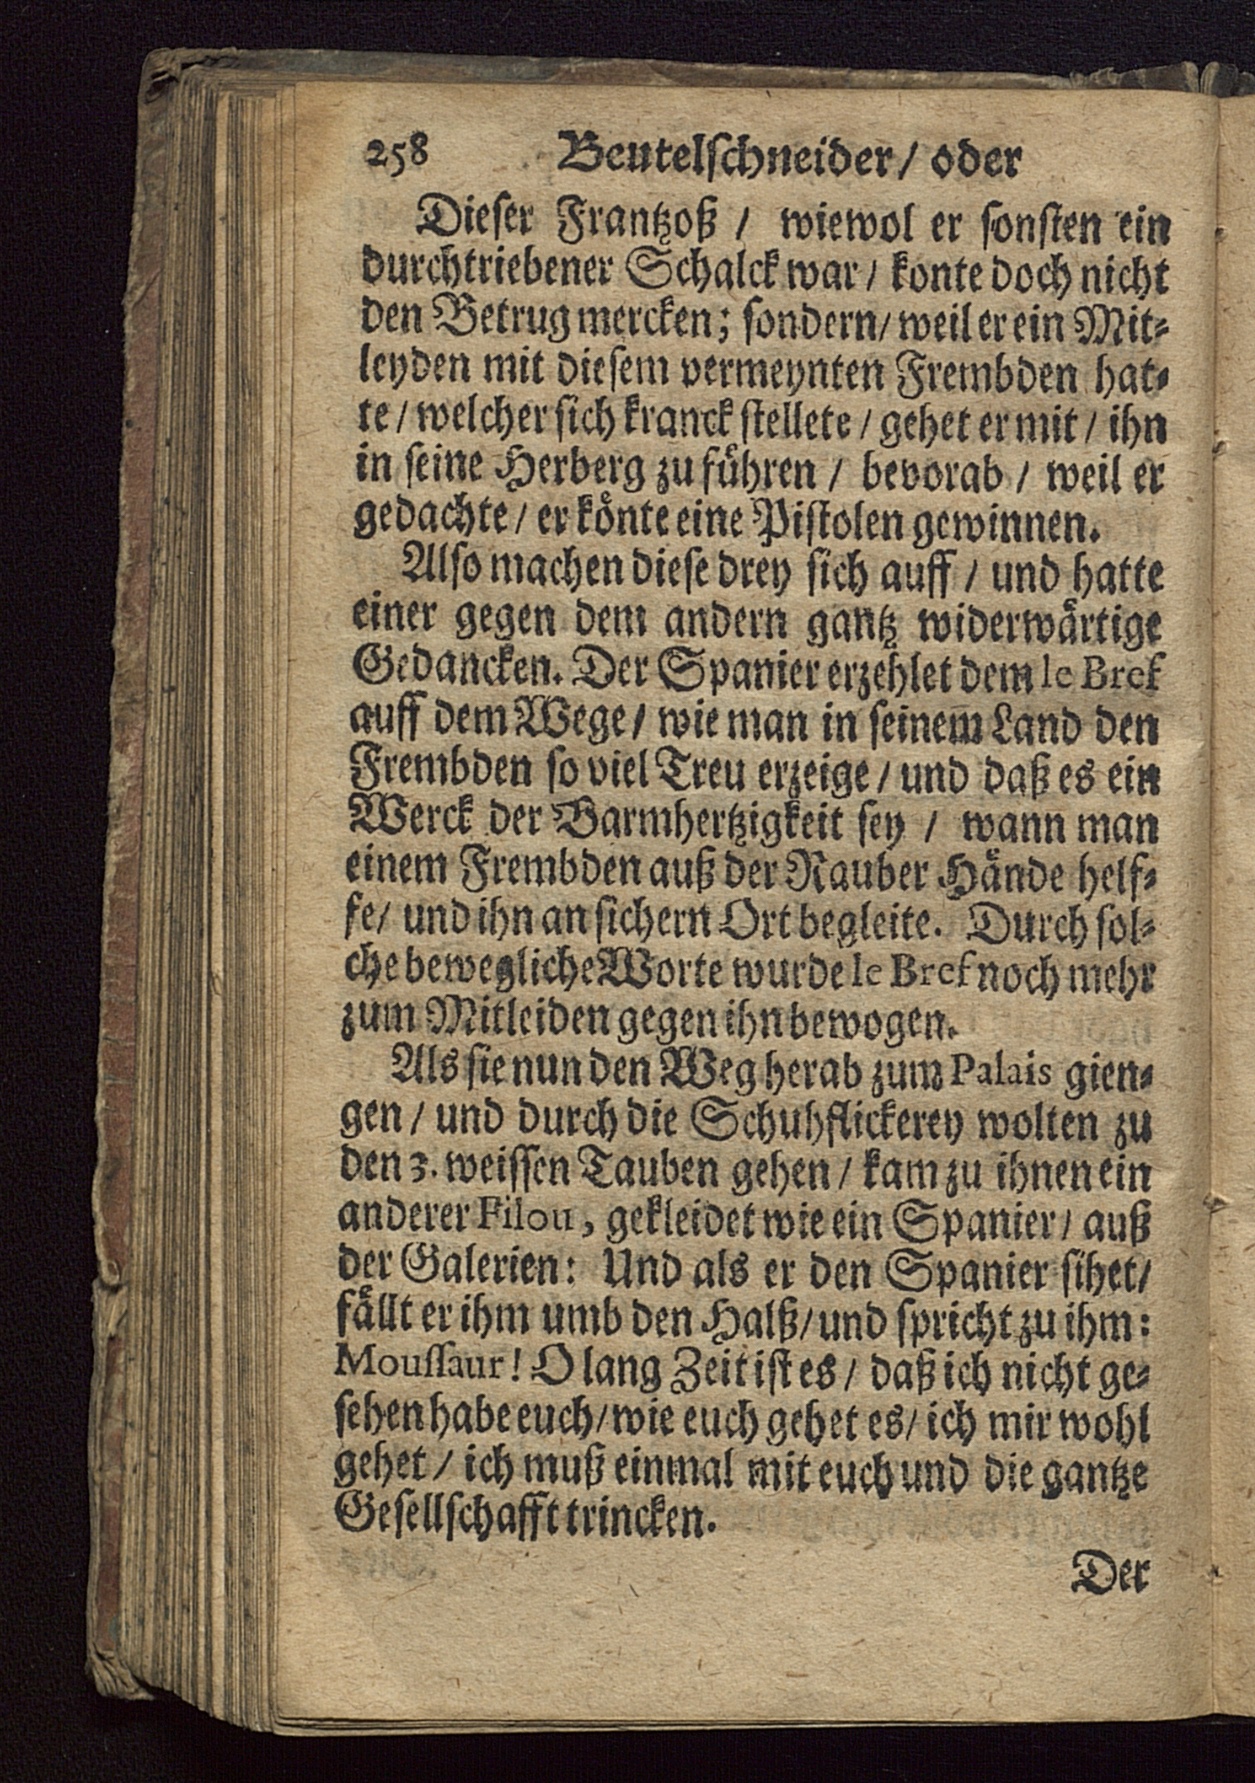 258 Beutelschneider/ oder
Dieser Frantzoß / wiewol er sonsten ein
durchtriebener Schalck war / konte doch nicht
den Betrug mercken; sondern/ weil er ein Mit-
leyden mit diesem vermeynten Frembden hat-
te / welcher sich kranck stellete / gehet er mit / ihn
in seine Herberg zu führen / bevorab / weil er
gedachte / er könte eine Pistolen gewinnen.
Also machen diese drey sich auff / und hatte
einer gegen dem andern gantz widerwärtige
Gedancken. Der Spanier erzehlet dem le Bref
auff dem Wege / wie man in seinem Land den
Frembden so viel Treu erzeige / und daß es ein
Werck der Barmhertzigkeit sey / wann man
einem Frembden auß der Rauber Hände helf-
fe/ und ihn an sichern Ort begleite. Durch sol-
che bewegliche Worte wurde le Bref noch mehr
zum Mitleiden gegen ihn bewogen.
Als sie nun den Weg herab zum Palais gien-
gen / und durch die Schuhflickerey wolten zu
den 3. weissen Tauben gehen / kam zu ihnen ein
anderer Filou, gekleidet wie ein Spanier / auß
der Galerien: Und als er den Spanier sihet/
fällt er ihm umb den Halß/ und spricht zu ihm:
Moussaur! O lang Zeit ist es / daß ich nicht ge-
sehen habe euch/ wie euch gehet es/ ich mir wohl
gehet / ich muß einmal mit euch und die gantze
Gesellschafft trincken.
Der